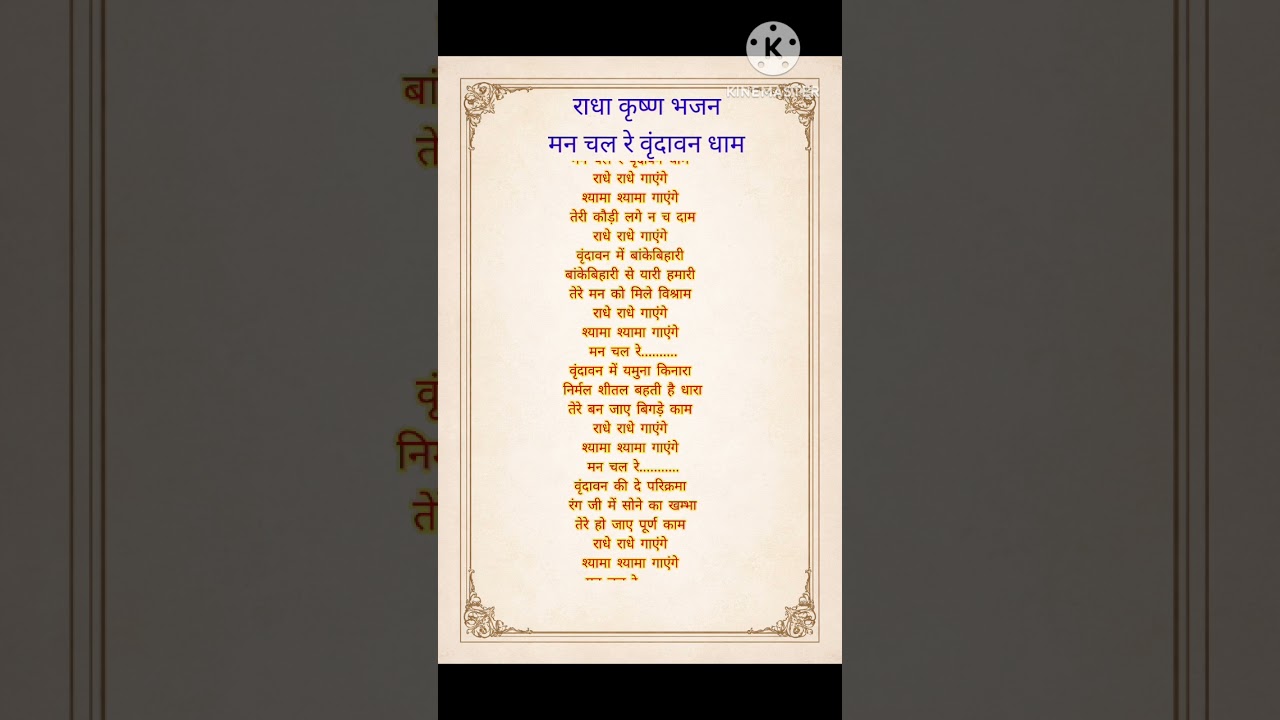 K
KINEMASTER
राधा कृष्ण भजन
मन चल रे वृंदावन धाम
मन चल रे वृंदावन धाम
राधे राधे गाएंगे
श्यामा श्यामा गाएंगे
तेरी कौड़ी लगे न च दाम
राधे राधे गाएंगे
वृंदावन में बांकेबिहारी
बांकेबिहारी से यारी हमारी
तेरे मन को मिले विश्राम
राधे राधे गाएंगे
श्यामा श्यामा गाएंगे
मन चल रे..........
वृंदावन में यमुना किनारा
निर्मल शीतल बहती है धारा
तेरे बन जाए बिगड़े काम
राधे राधे गाएंगे
श्यामा श्यामा गाएंगे
मन चल रे...........
वृंदावन की दे परिक्रमा
रंग जी में सोने का खम्भा
तेरे हो जाए पूर्ण काम
राधे राधे गाएंगे
श्यामा श्यामा गाएंगे